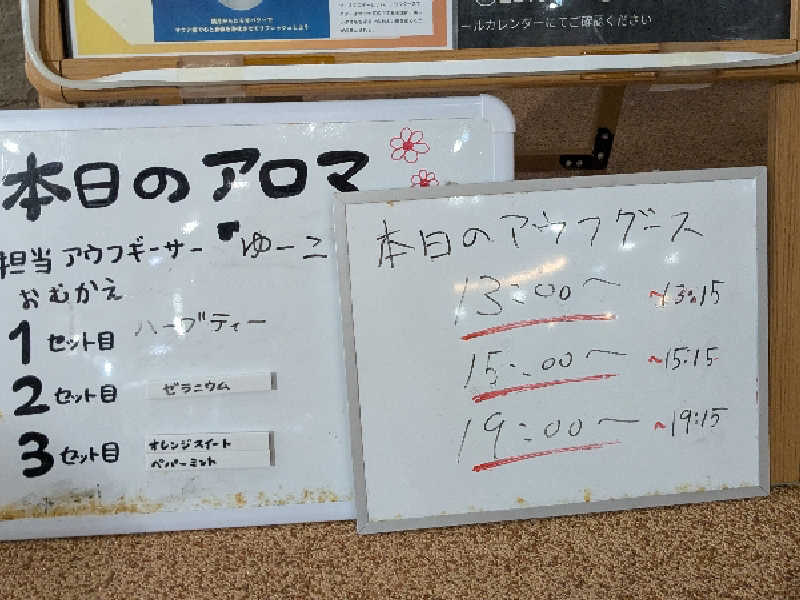 ールカレンダーにてご確認ください
本日のアロマ
担当 アウフギーサー ゆーこ
おむかえ
1セット目 ハーブティー
2セット目 ゼラニウム
3セット目 オレンジスイート
ペパーミント
本日のアウフグース
13:00〜 〜13:15
15:00〜 〜15:15
19:00〜 〜19:15